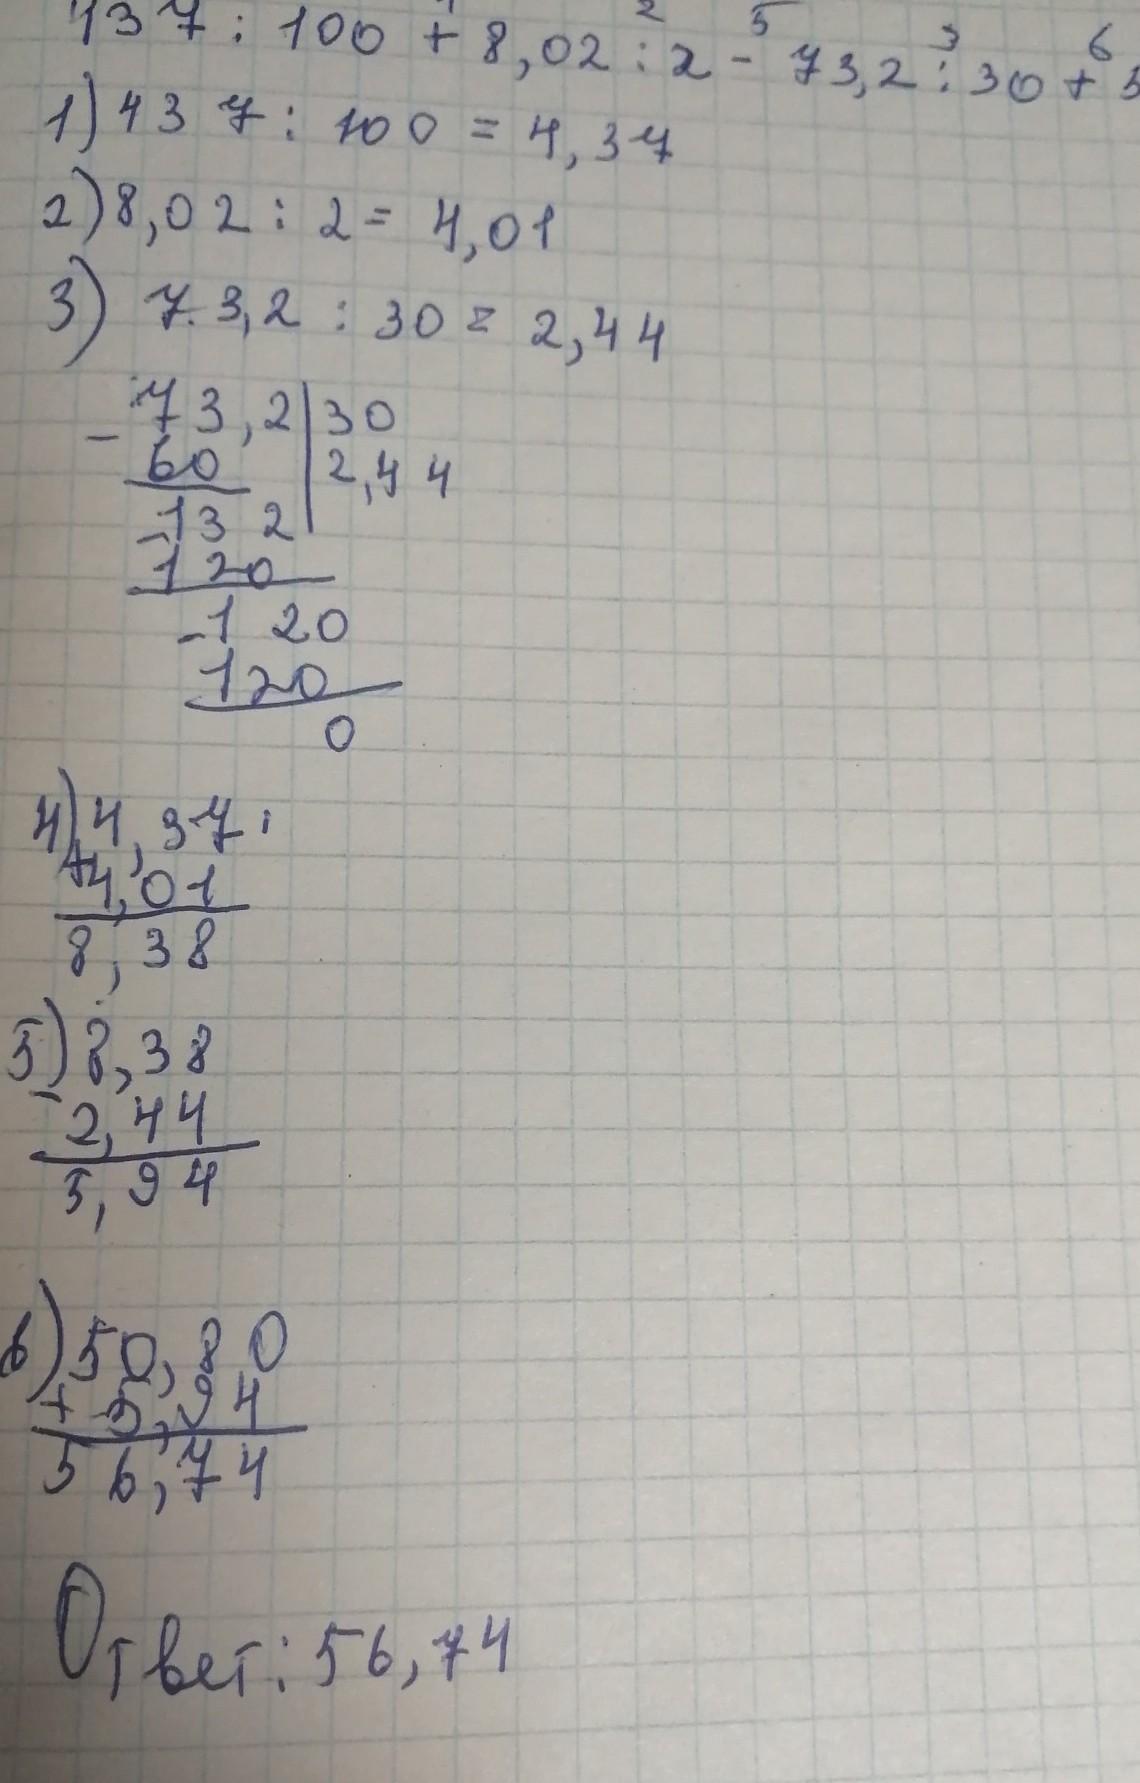 437 : 100 + 8,02 : 2 - 73,2 : 30 + 5
1) 437 : 100 = 4,37
2) 8,02 : 2 = 4,01
3) 73,2 : 30 = 2,44
- 73,2 | 30
60 | 2,44
- 132
120
- 120
120
0
4) 4,37
+ 4,01
8,38
5) 8,38
- 2,44
5,94
6) 50,80
+ 5,94
56,74
Ответ: 56,74